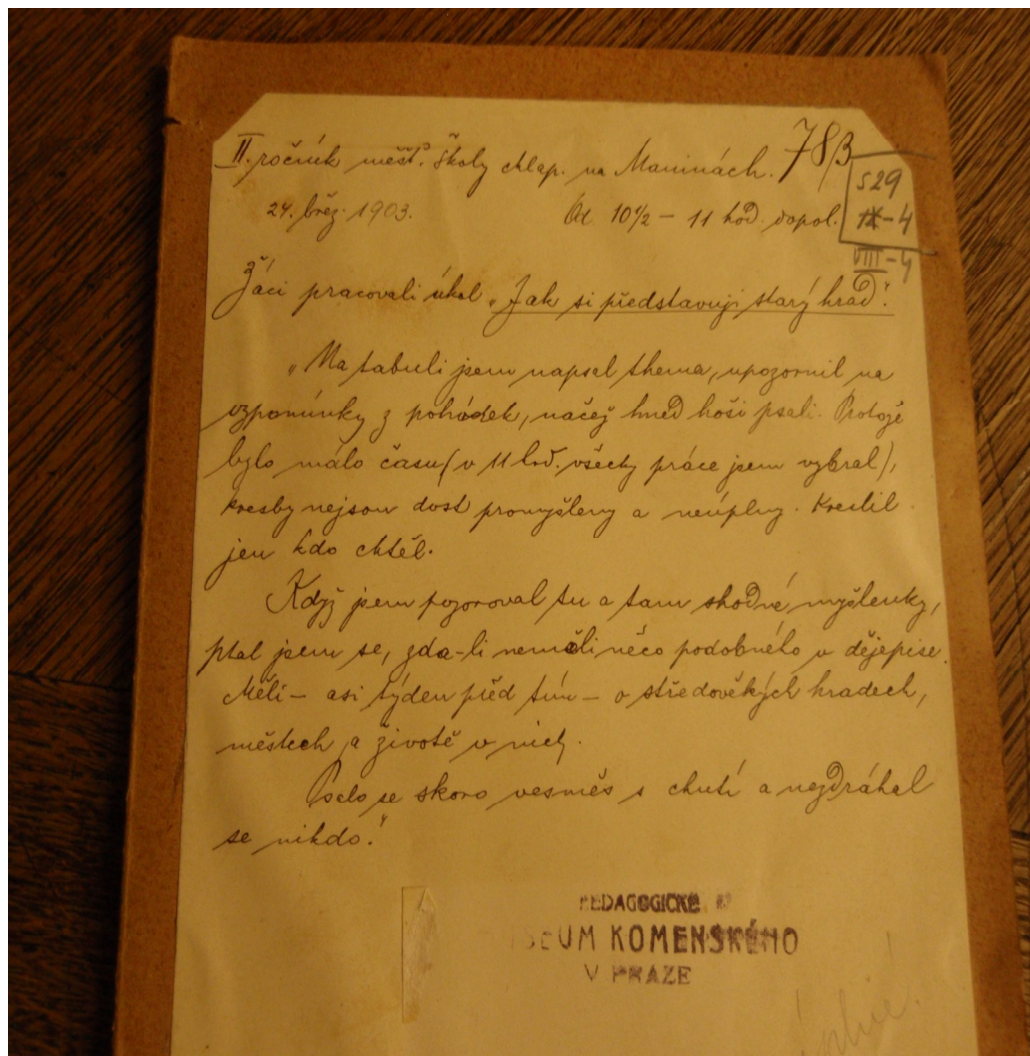 II. ročník měšť. školy chlap. na Maninách. 78/3
529
24. břez. 1903. Od 10 1/2 – 11 hod. dopol.
IX-4
VIII-4
Žáci pracovali úkol „Jak si představuji starý hrad“.
„Na tabuli jsem napsal thema, upozornil na
vzpomínky z pohádek, načež hned hoši psali. Protože
bylo málo času (v 11 hod. všecky práce jsem vybral),
kresby nejsou dost promyšleny a neúplny. Kreslil
jen kdo chtěl.
Když jsem pozoroval tu a tam shodné myšlenky,
ptal jsem se, zda-li neměli něco podobného v dějepise.
Měli – asi týden před tím – o středověkých hradech,
městech a životě v nich.
Psalo se skoro vesměs s chutí a nezdráhal
se nikdo.“
PEDAGOGICKÉ
MUSEUM KOMENSKÉHO
V PRAZE